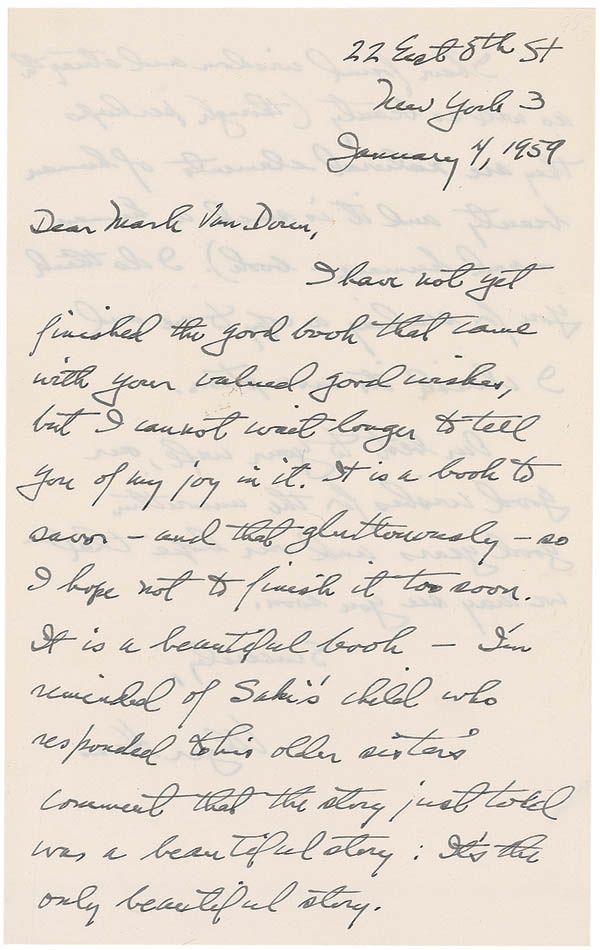 22 East 8th St
New York 3
January 4, 1959
Dear Mark Van Doren,
I have not yet
finished the good book that came
with your valued good wishes,
but I cannot wait longer to tell
you of my joy in it. It is a book to
savor - and that gluttonously - so
I hope not to finish it too soon.
It is a beautiful book - I'm
reminded of Saki's child who
responded to his older sisters'
comment that the story just told
was a beautiful story: It's the
only beautiful story.